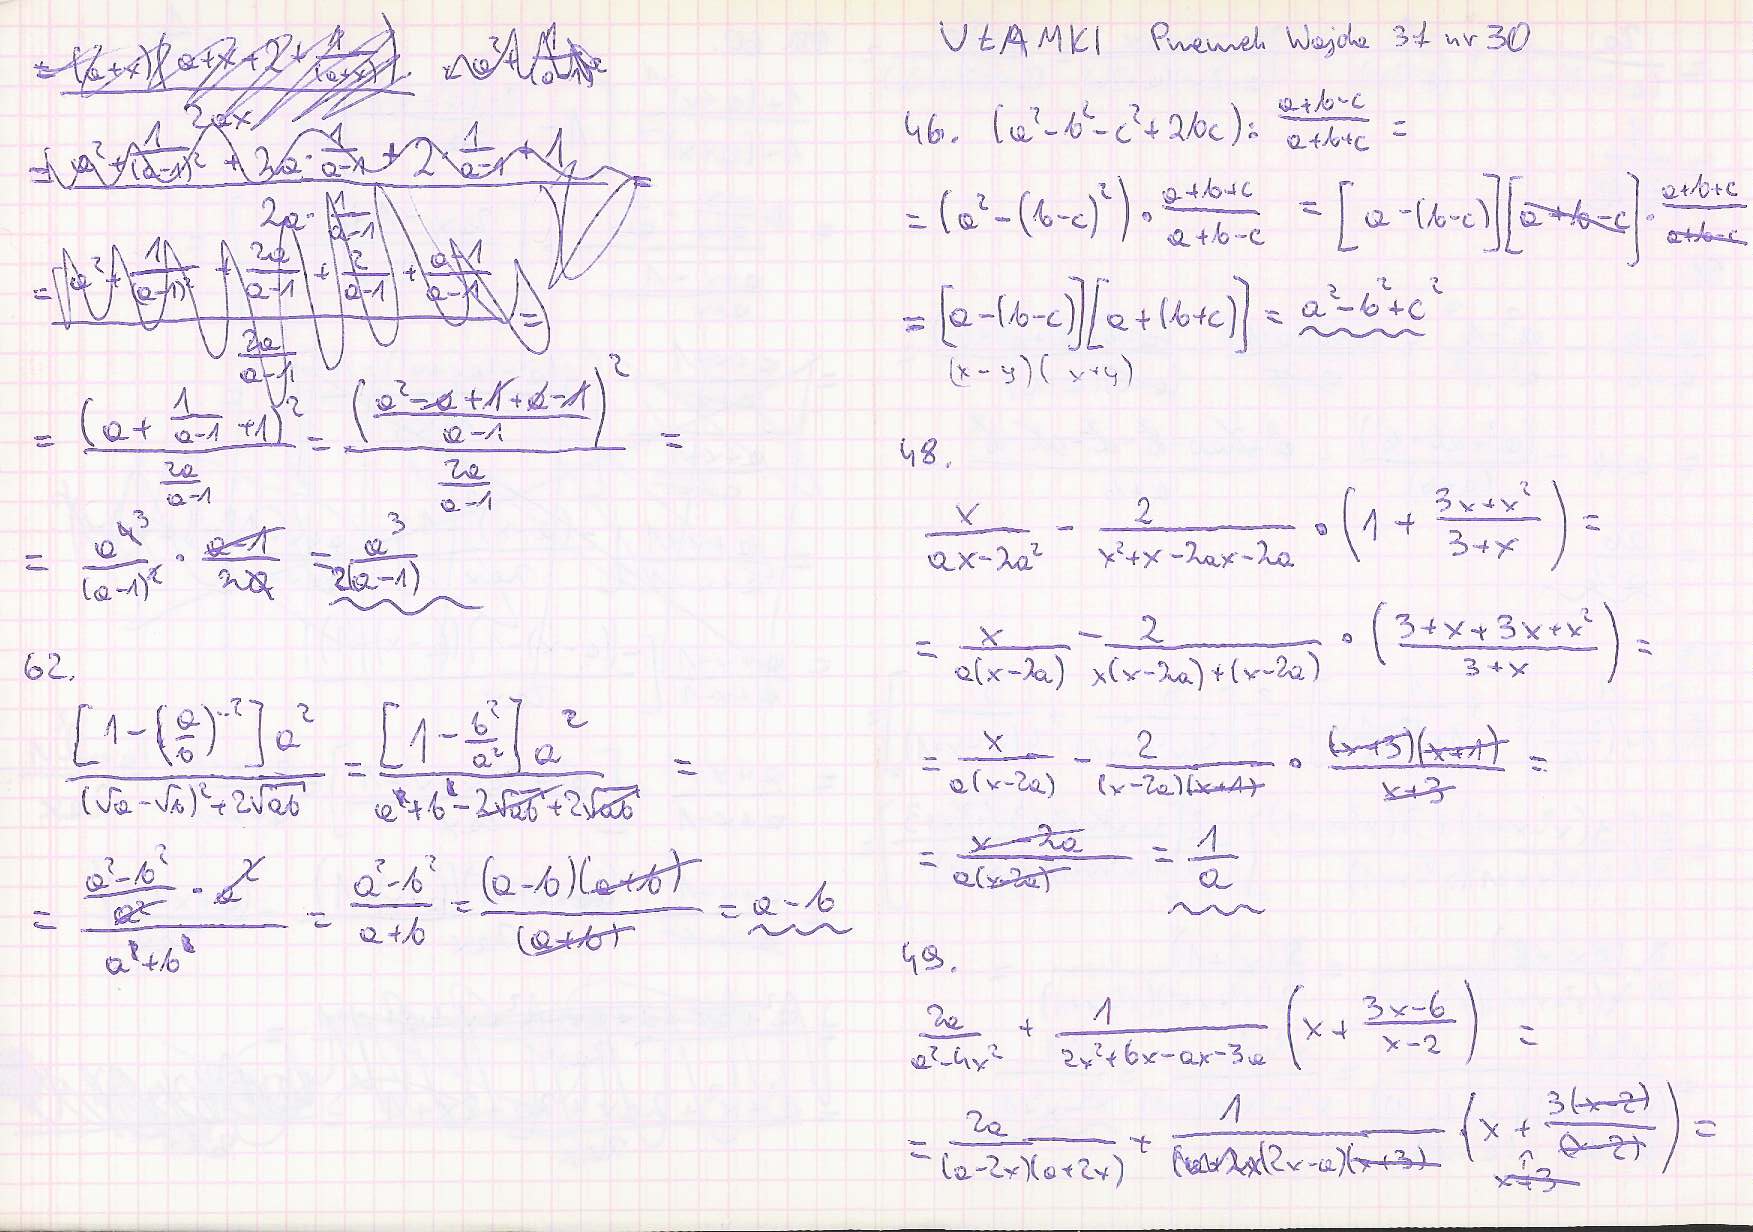 = (a+x)(a+x+2+1/(a+x))
2ax
= a² + 1/(a-1)² + 2a·1/(a-1) + 2·1/(a-1) + 1 =
2a·1/(a-1)
= a² + 1/(a-1)² + 2a/(a-1) + 2/(a-1) + (a-1)/(a-1) =
2a/(a-1)
= (a + 1/(a-1) + 1)² / (2a/(a-1)) = ((a²-a+1+a-1)/(a-1))² / (2a/(a-1)) =
= a⁴³/(a-1)² · (a-1)/2a = a³/2(a-1)
62.
[1-(a/b)⁻²]a² / ((√a-√b)²+2√ab) = [1-b²/a²]a² / (a+b-2√ab+2√ab) =
= ((a²-b²)/a² · a²) / (a+b) = (a²-b²)/(a+b) = (a-b)(a+b)/(a+b) = a-b
UŁAMKI Wojda 31 nr 30
46. (a²-b²-c²+2bc) : (a+b-c)/(a+b+c) =
= (a²-(b-c)²) · (a+b+c)/(a+b-c) = [a-(b-c)][a+b-c] · (a+b+c)/(a+b-c)
= [a-(b-c)][a+(b+c)] = a²-b²+c²
(x-y)(x+y)
48.
x/(ax-2a²) - 2/(x²+x-2ax-2a) · (1 + (3x+x²)/(3+x)) =
= x/(a(x-2a)) - 2/(x(x-2a)+(x-2a)) · ((3+x+3x+x²)/(3+x)) =
= x/(a(x-2a)) - 2/((x-2a)(x+1)) · (x+3)(x+1)/(x+3) =
= (x-2a)/(a(x-2a)) = 1/a
49.
2a/(a²-4x²) + 1/(2x²+6x-ax-3a) (x + (3x-6)/(x-2)) =
= 2a/((a-2x)(a+2x)) + 1/((2x-a)(x+3)) (x + 3(x-2)/(x-2)) =
x+3